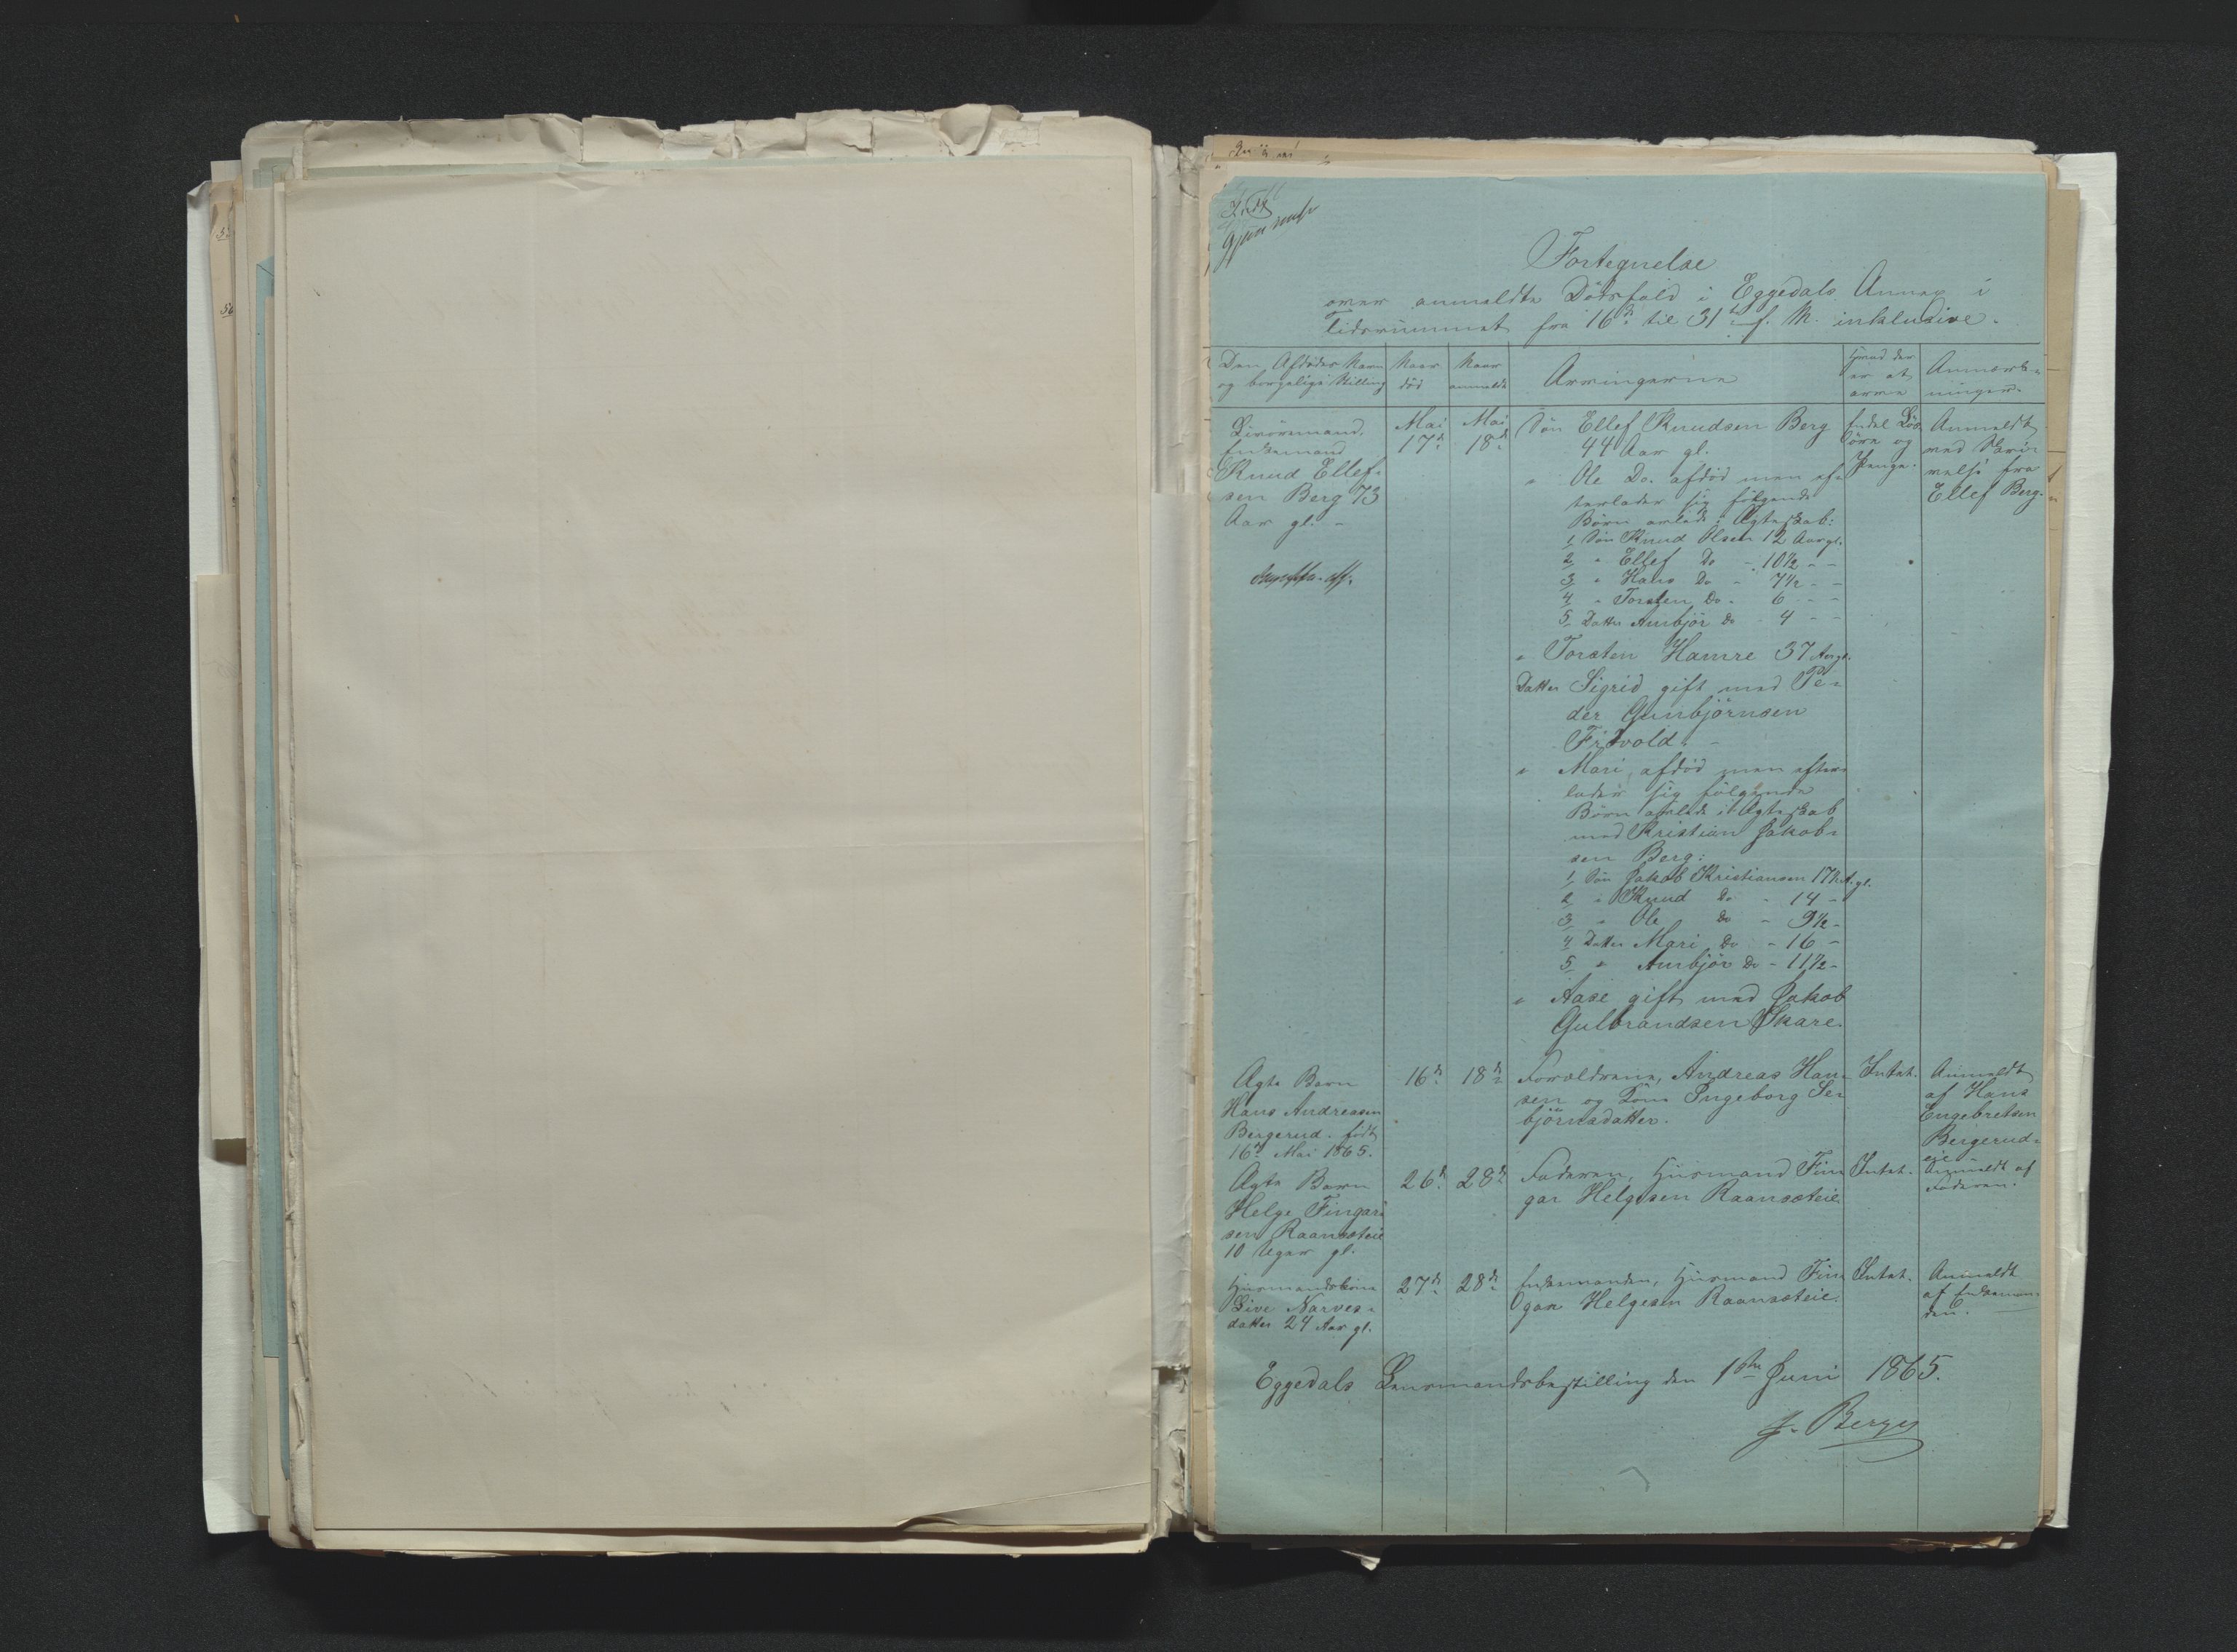 Fortegnelse
over anmeldte Dödsfald i Eggedals Annex i
Tidsrummet fra 16de til 31te f. M. inklusive.
Den Afdödes Navn
og borgelige Stilling
Naar
död
Naar
anmeldt
Arvingerne
Hvad der
er at
arve
Anmærk-
ninger.
Livöresmand,
Enkemand
Knud Ellef-
sen Berg 73
Aar gl.
Mai
17de
Mai
18de
Sön Ellef Knudsen Berg
44 Aar gl.
" Ole Do. afdöd men ef-
terlader sig fölgende
Börn avlede i Ægteskab:
1, Sön Knud Olsen 12 Aar gl.
2, " Ellef Do - 10½ - -
3, " Hans Do - 7½ - -
4, " Torsten Do - 6 - -
5, Datter Ambjör Do - 4 - -
" Torsten Hamre 37 Aar gl.
Datter Sigrid gift med Pe-
der Gunbjörnsen
Frövold.
" Mari, afdöd men efter-
lader sig fölgende
Börn avlede i Ægteskab
med Kristian Jakob-
sen Berg:
1, Sön Jakob Kristiansen 17½ A. gl.
2, " Knud Do - 14 -
3, " Ole Do - 9½ -
4, Datter Mari Do - 16 -
5, " Ambjör Do - 11½ -
" Aase gift med Jakob
Gulbrandsen Skare.
Endel Lös-
öre og
Penge.
Anmeldt
ved Skri-
velse fra
Ellef Berg.
Ægte Barn
Hans Andreasen
Bergerud. född
16de Mai 1865.
16de
18de
Forældrene, Andreas Han-
sen og Kone Ingeborg Se-
björnsdatter.
Intet.
Anmeldt
af Hans
Engebretsen
Bergerud-
eie
Ægte Barn
Helge Fingar-
sen Raansæteie
10 Uger gl.
26de
28de
Faderen, Husmand Fin-
gar Helgesen Raansæteie
Intet.
Anmeldt af
Faderen.
Husmandskone
Live Narves-
datter 24 Aar gl.
27de
28de
Enkemanden, Husmand Fin-
gar Helgesen Raansæteie.
Intet.
Anmeldt
af Enkeman-
den.
Eggedals Lensmandsbestilling den 1ste Juni 1865.
J. Berge